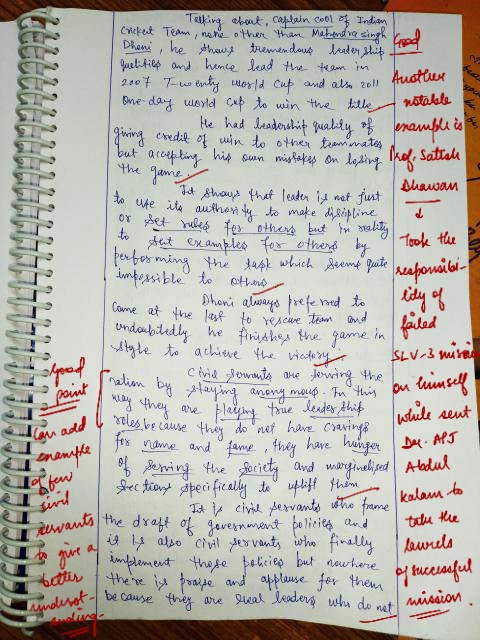 Talking about, Captain cool of Indian
Cricket Team, none other than Mahendra singh
Dhoni, he shows tremendous leadership
qualities and hence lead the team in
2007 T-wenty world cup and also 2011
One-day world cup to win the title
He had leadership quality of
giving credit of win to other teammates
but accepting his own mistakes on losing
the game.
It shows that leader is not just
to use its authority to make disipline
or set rules for others but in reality
to set examples for others by
performing the task which seems quite
impossible to others
Dhoni always preferred to
came at the last to rescue team and
undoubtedly he finishes the game in
style to achieve the victory
Civil servants are serving the
nation by staying anonymous. In this
way they are playing true leadership
roles because they do not have cravings
for name and fame, they have hunger
of serving the society and marginelised
sections specifically to uplift them
It is civil servants who frame
the draft of government policies and
it is also civil servants who finally
implement those policies but nowhere
there is praise and applause for them
because they are real leaders who do not
Good
Another
notable
example is
Prof. Satish
Dhawan
↓
Took the
responsibi-
lity of
failed
SLV-3 mission
on himself
while sent
Dr. APJ
Abdul
Kalam to
take the
laurels
of successful
mission.
Good
point
Can add
example
of few
civil
servants
to give a
better
underst-
anding.